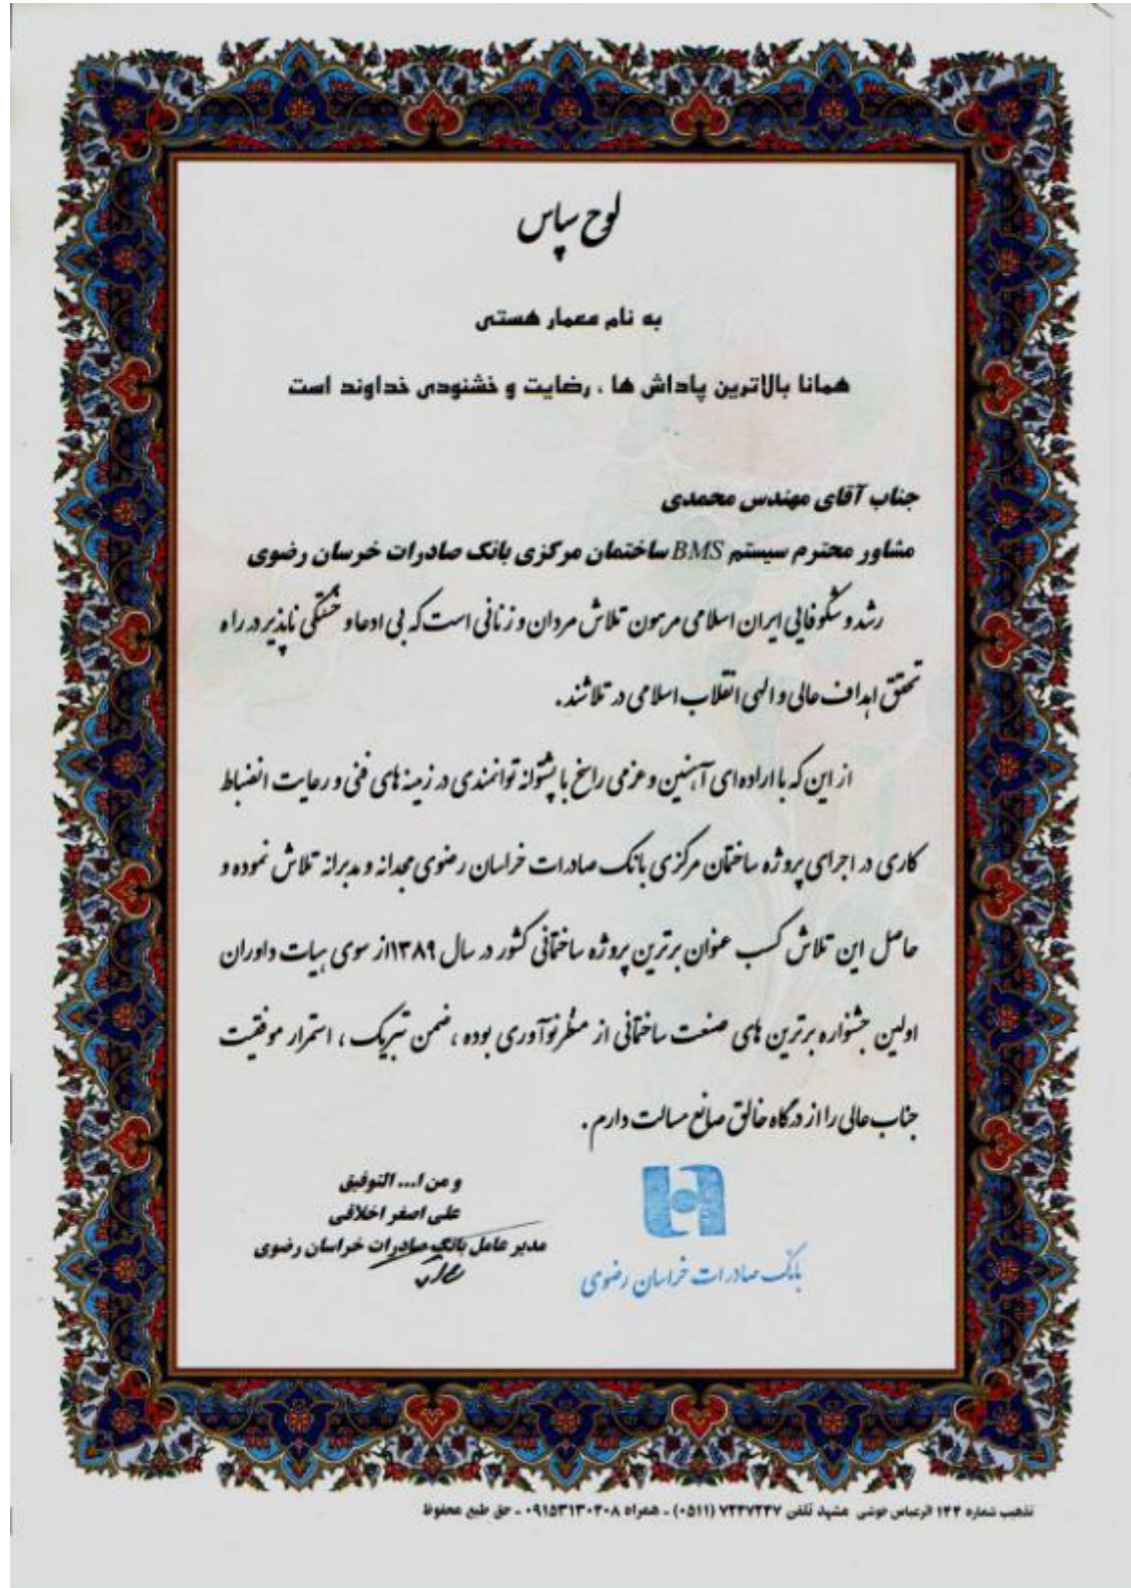 لوح سپاس
به نام معمار هستی
همانا بالاترین پاداش ها ، رضایت و خشنودی خداوند است
جناب آقای مهندس محمدی
مشاور محترم سیستم BMS ساختمان مرکزی بانک صادرات خرسان رضوی
رشد و شکوفایی ایران اسلامی مرهون تلاش مردان و زنانی است که بی ادعا و خستگی ناپذیر در راه
تحقق اهداف عالی و الهی انقلاب اسلامی در تلاشند .
از این که با اراده ای آهنین و عزمی راسخ با پشتوانه توانمندی در زمینه های فنی و رعایت انضباط
کاری در اجرای پروژه ساختمان مرکزی بانک صادرات خراسان رضوی مجدانه و مدبرانه تلاش نموده و
حاصل این تلاش کسب عنوان برترین پروژه ساختمانی کشور در سال ۱۳۸۹ از سوی هیات داوران
اولین جشنواره برترین های صنعت ساختمانی از منظر نوآوری بوده ، ضمن تبریک ، استمرار موفقیت
جناب عالی را از درگاه خالق صانع مسالت دارم .
و من ا... التوفیق
علی اصغر اخلاقی
مدیر عامل بانک صادرات خراسان رضوی
بانک صادرات خراسان رضوی
تذهیب شماره ۱۴۴ اثرعباس خوشی مشهد تلفن ۷۲۴۷۲۴۷ (۰۵۱۱) ـ همراه ۰۹۱۵۳۱۳۰۴۰۸ ـ حق طبع محفوظ